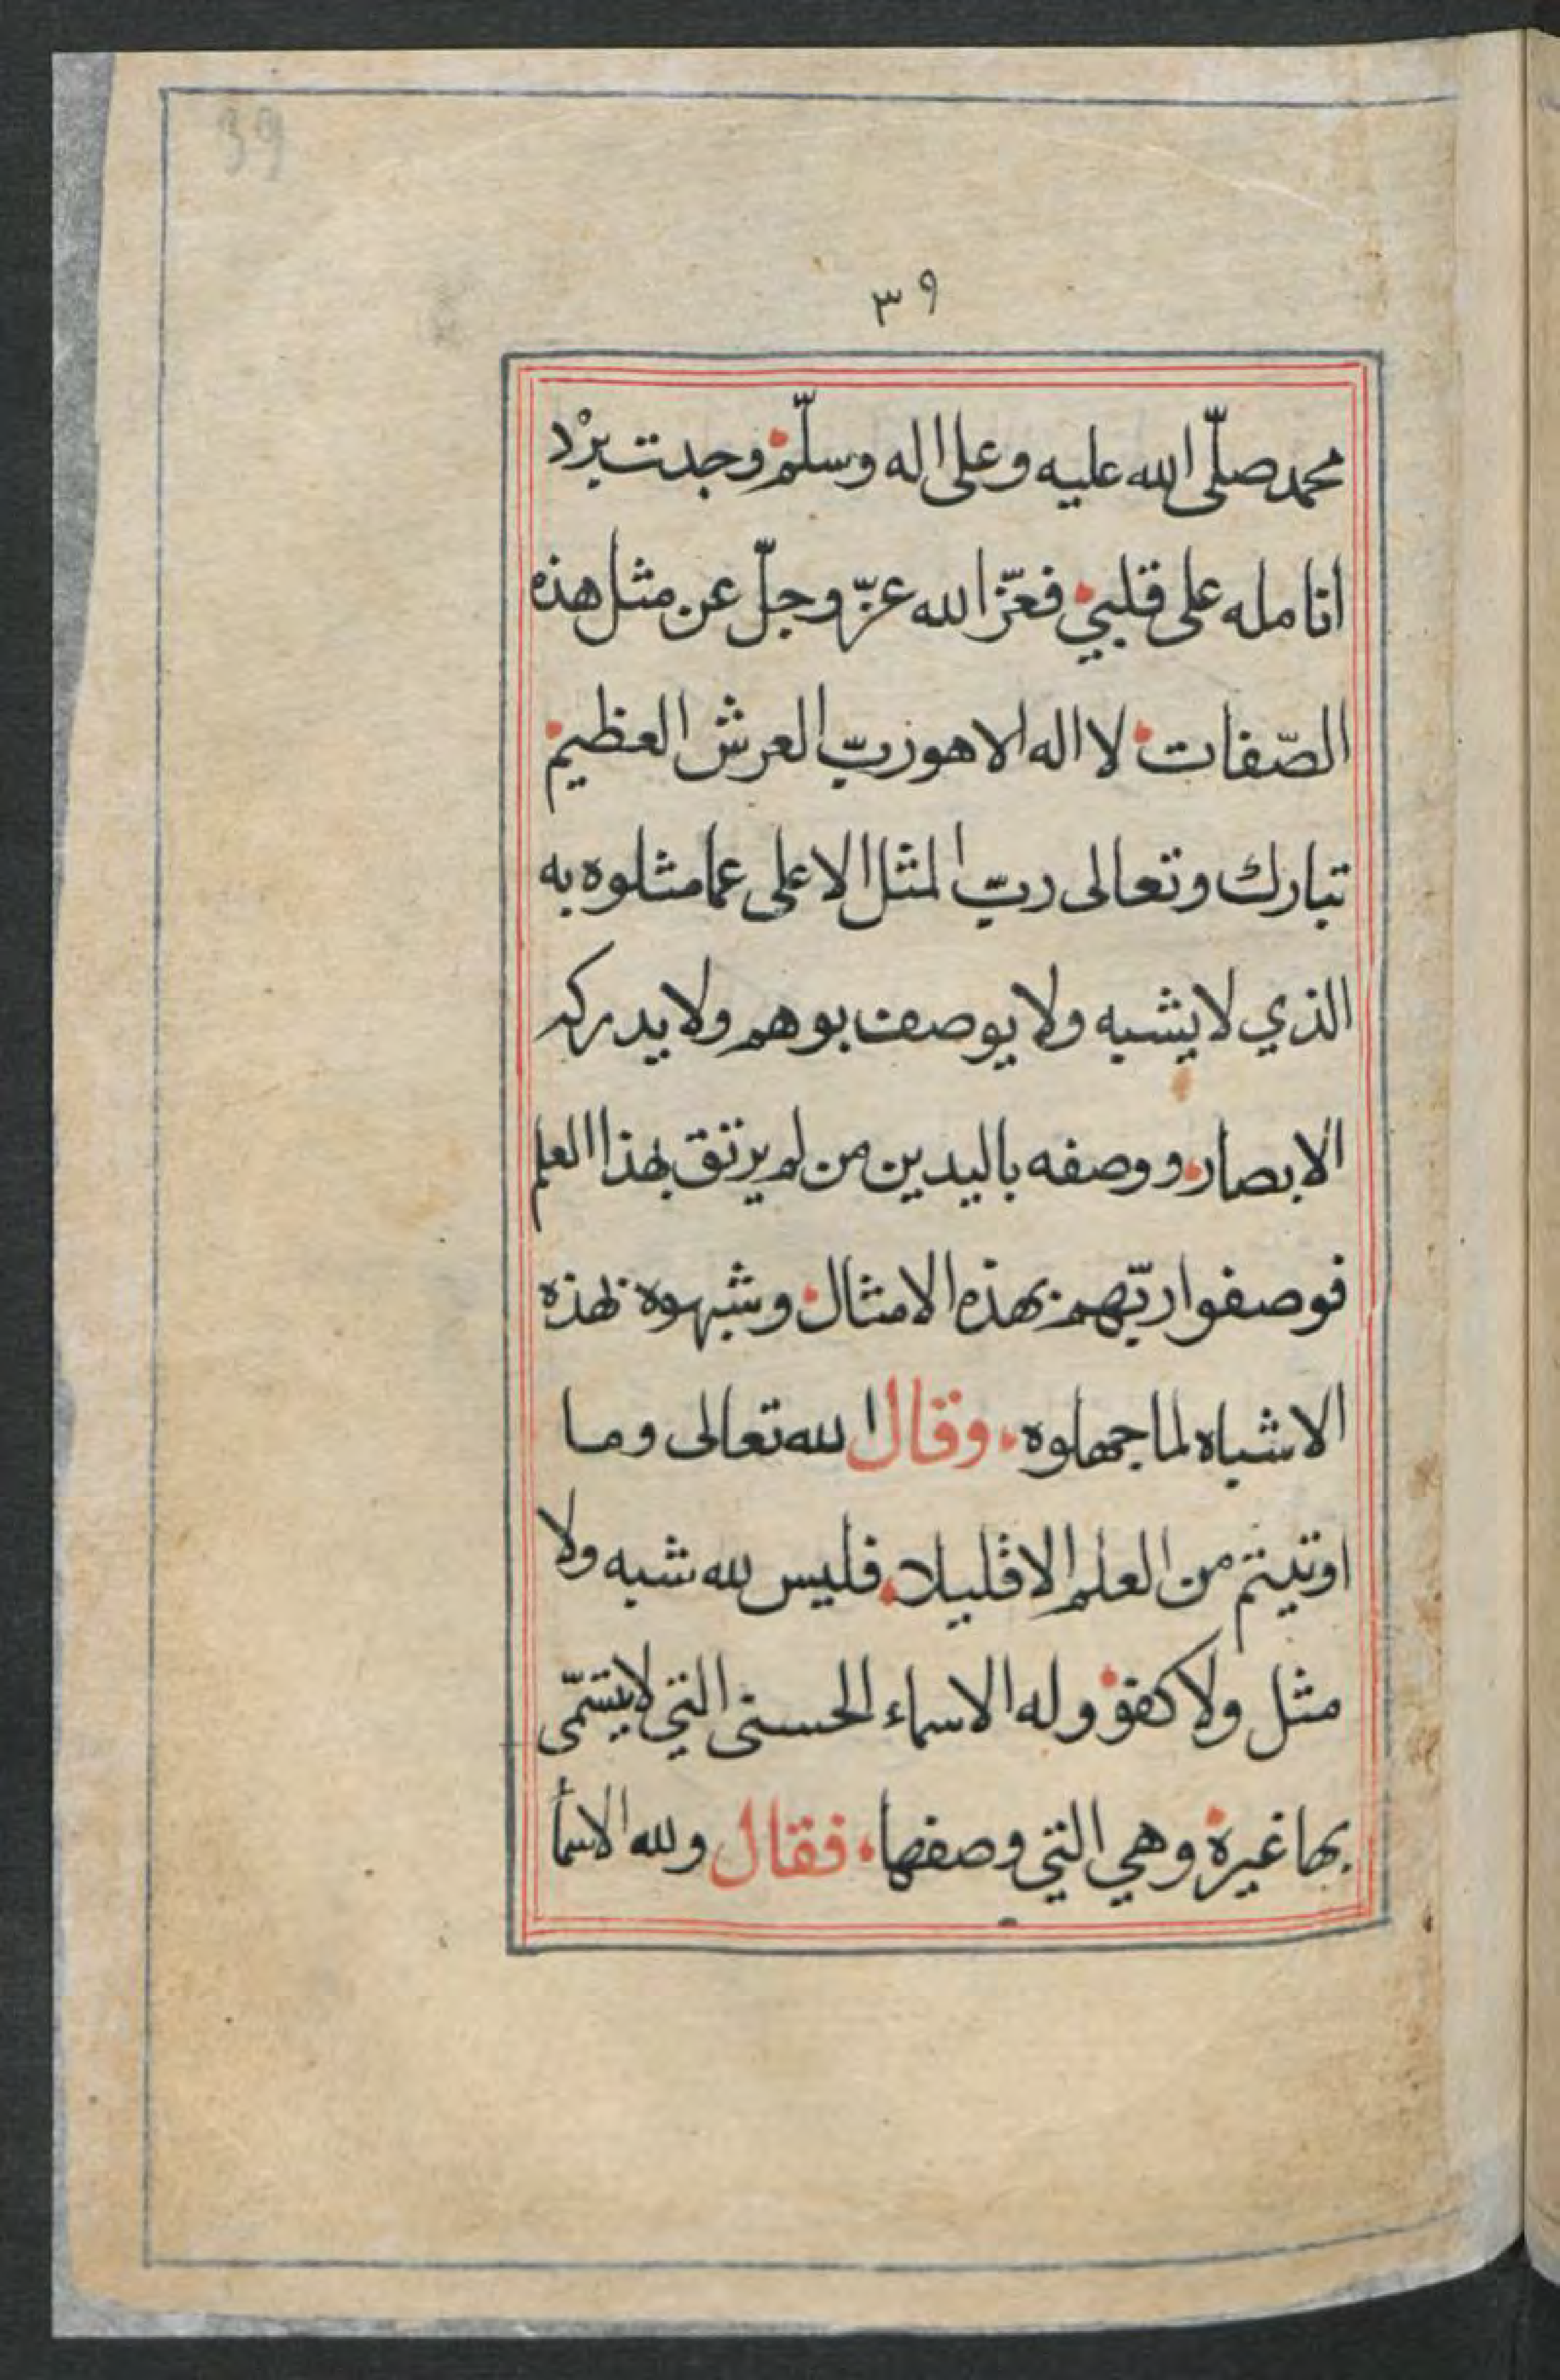 39
٣٩
محمد صلّى الله عليه وعلى اله وسلّم وجدت برْد
انامله على قلبي فعزّ الله عزّ وجلّ عن مثل هذه
الصّفات لا اله الا هو ربّ العرش العظيم
تبارك وتعالى ربّ المثل الاعلى عما مثلوه به
الذي لا يشبه ولا يوصف بوهم ولا يدركه
الابصار ووصفه باليدين من لم يرتق بهذا العلم
فوصفوا ربّهم بهذه الامثال وشبهوه بهذه
الاشباه لما جهلوه وقال الله تعالى وما
اوتيتم من العلم الا قليلا فليس لله شبه ولا
مثل ولا كفو وله الاسماء الحسنى التي لا يتسمّى
بها غيره وهي التي وصفها فقال ولله الاسمأ